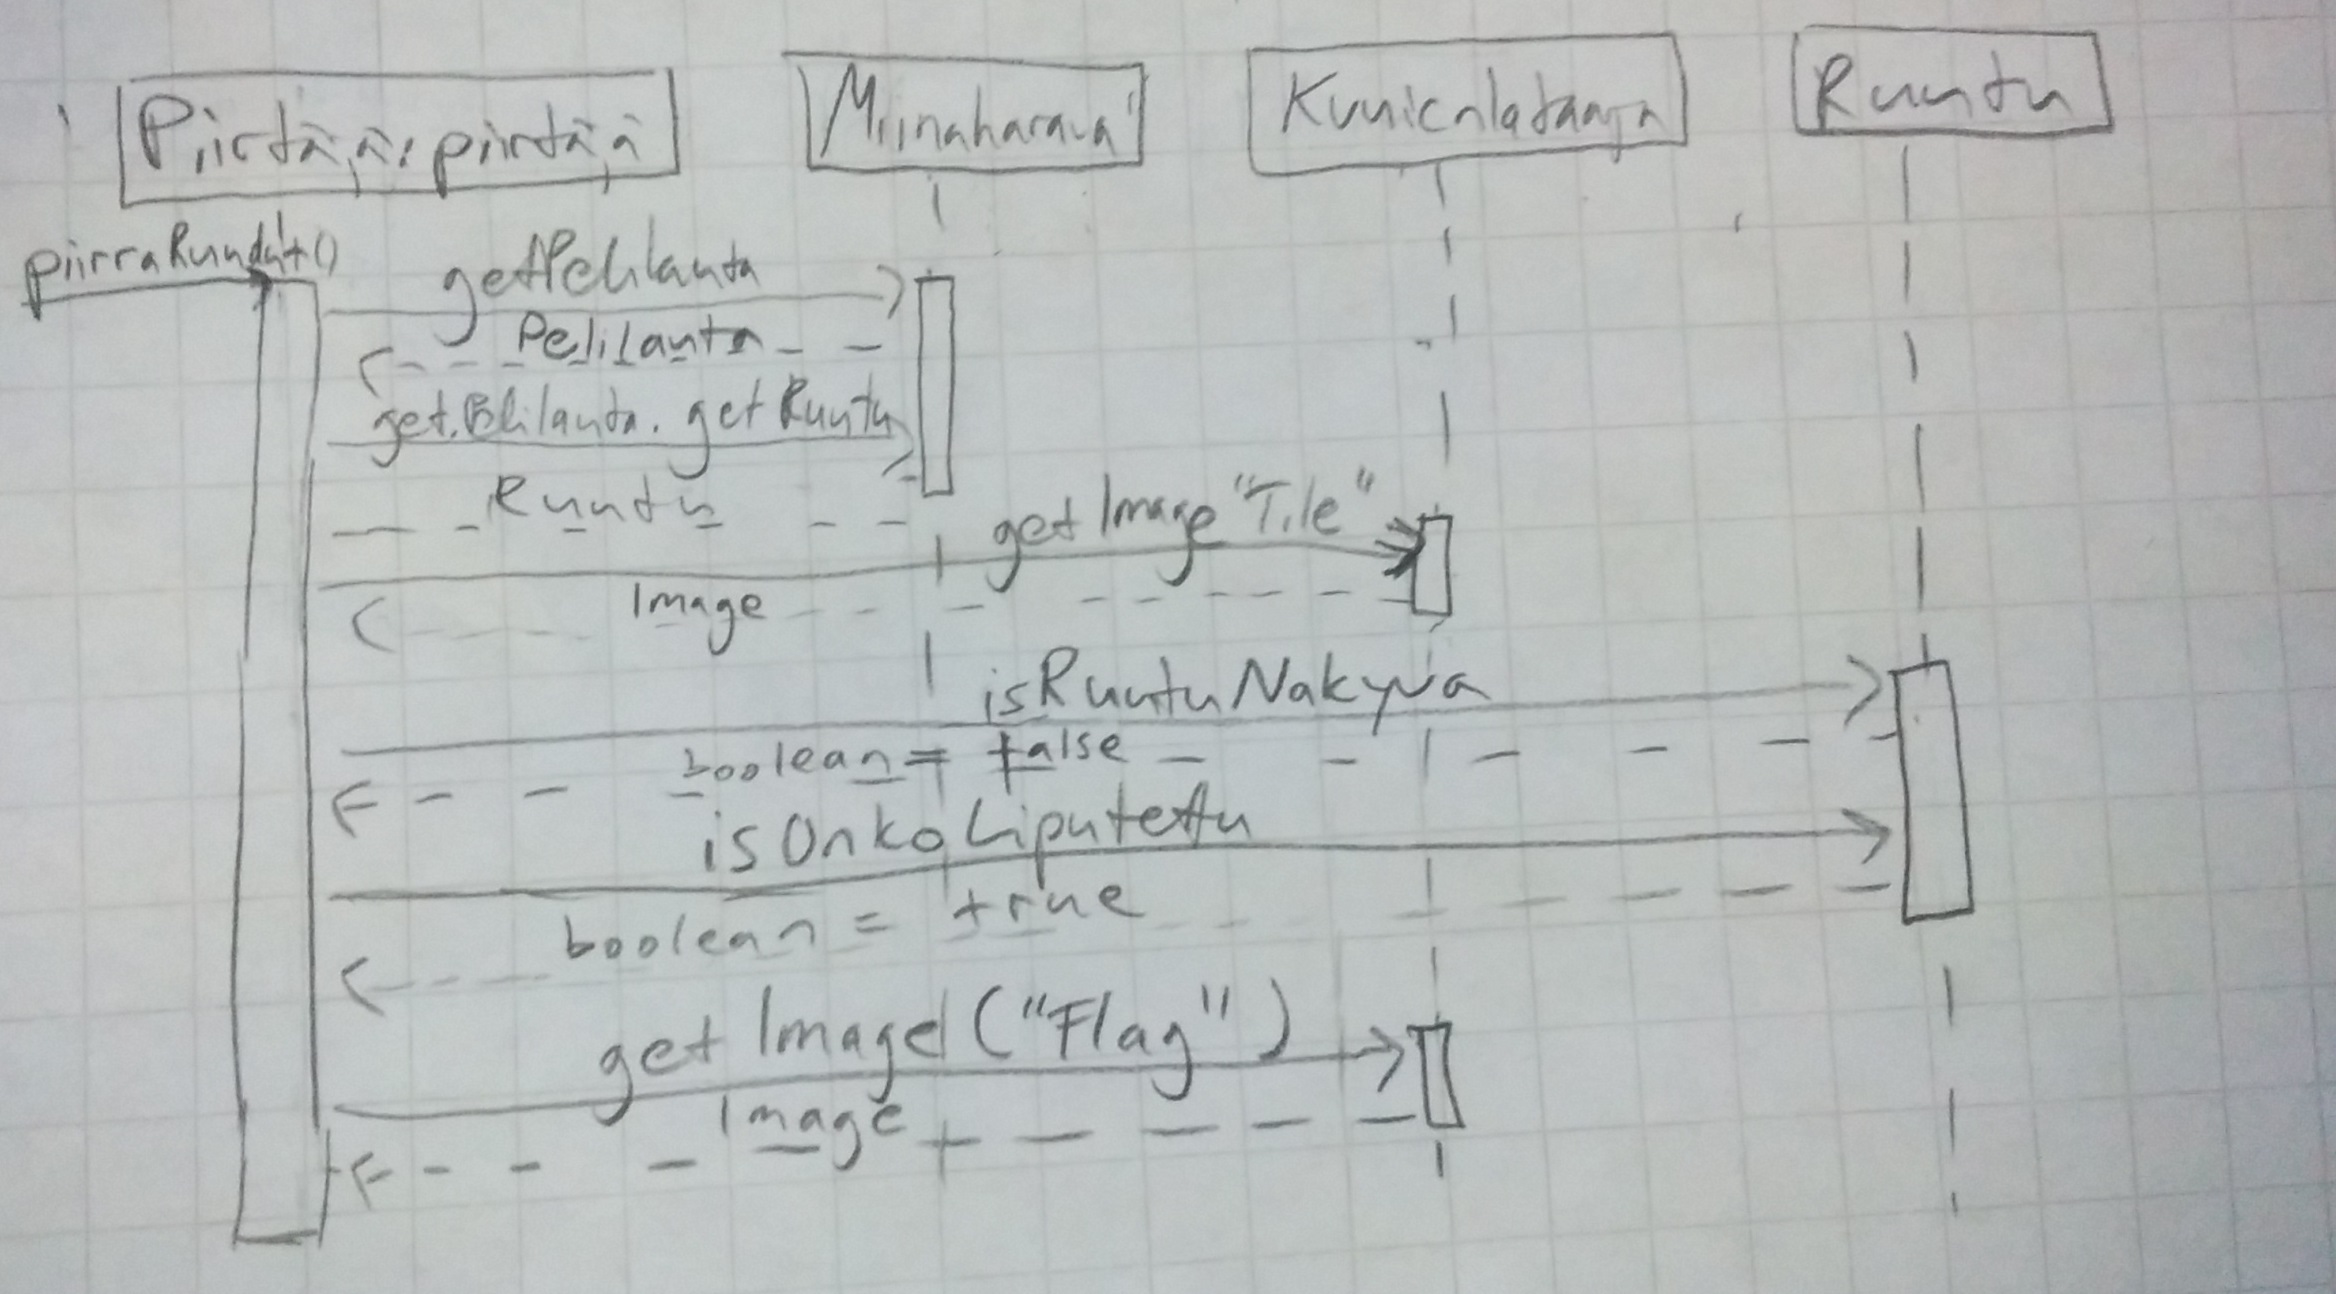 Piirtäjä: piirtäjä
Miinaharava
Kuvienlataaja
Ruutu
piirraRuudut()
getPelilauta
Pelilauta
get.Pelilauta.getRuutu
Ruutu
getImage "Tile"
Image
isRuutuNakyva
boolean = false
isOnkoLiputettu
boolean = true
getImage("Flag")
Image